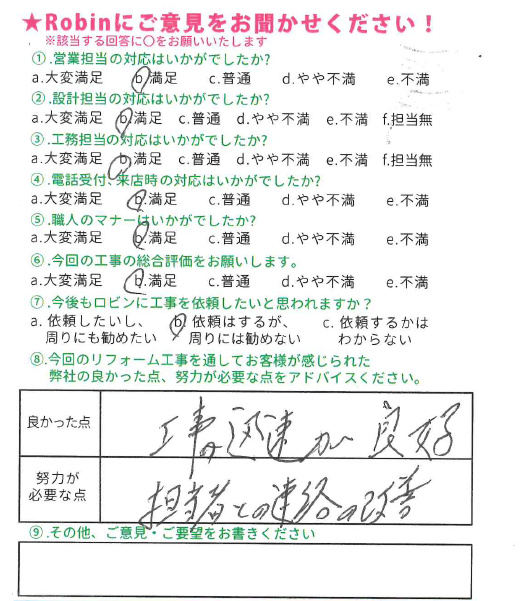 ★Robinにご意見をお聞かせください！
※該当する回答に〇をお願いいたします
①.営業担当の対応はいかがでしたか?
a.大変満足 b.満足 c.普通 d.やや不満 e.不満
②.設計担当の対応はいかがでしたか?
a.大変満足 b.満足 c.普通 d.やや不満 e.不満 f.担当無
③.工務担当の対応はいかがでしたか?
a.大変満足 b.満足 c.普通 d.やや不満 e.不満 f.担当無
④.電話受付、来店時の対応はいかがでしたか?
a.大変満足 b.満足 c.普通 d.やや不満 e.不満
⑤.職人のマナーはいかがでしたか?
a.大変満足 b.満足 c.普通 d.やや不満 e.不満
⑥.今回の工事の総合評価をお願いします。
a.大変満足 b.満足 c.普通 d.やや不満 e.不満
⑦.今後もロビンに工事を依頼したいと思われますか？
a. 依頼したいし、 b. 依頼はするが、 c. 依頼するかは
周りにも勧めたい 周りには勧めない わからない
⑧.今回のリフォーム工事を通してお客様が感じられた
弊社の良かった点、努力が必要な点をアドバイスください。
良かった点 工事の迅速が良好
努力が
必要な点 担当者との連絡の改善
⑨.その他、ご意見・ご要望をお書きください